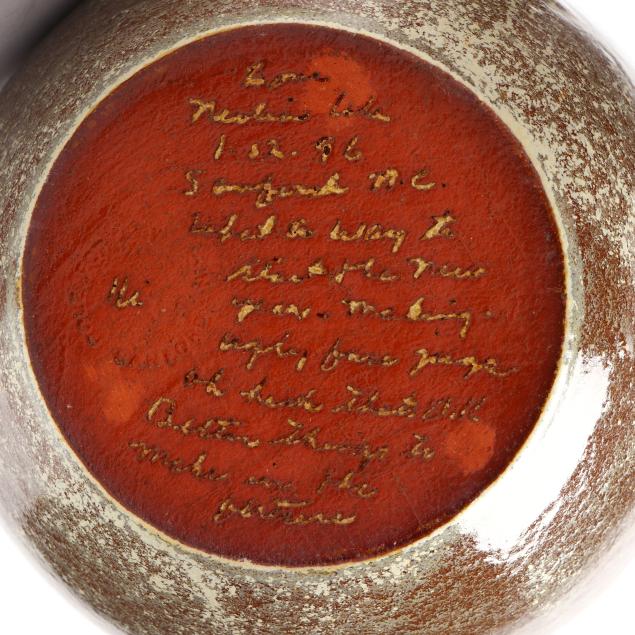 Love
Neolia Cole
1-22-96
Sanford N.C.
what a way to
start the new
year. making
Hi
ugly face jugs
oh heck that's still
Better things to
make in the